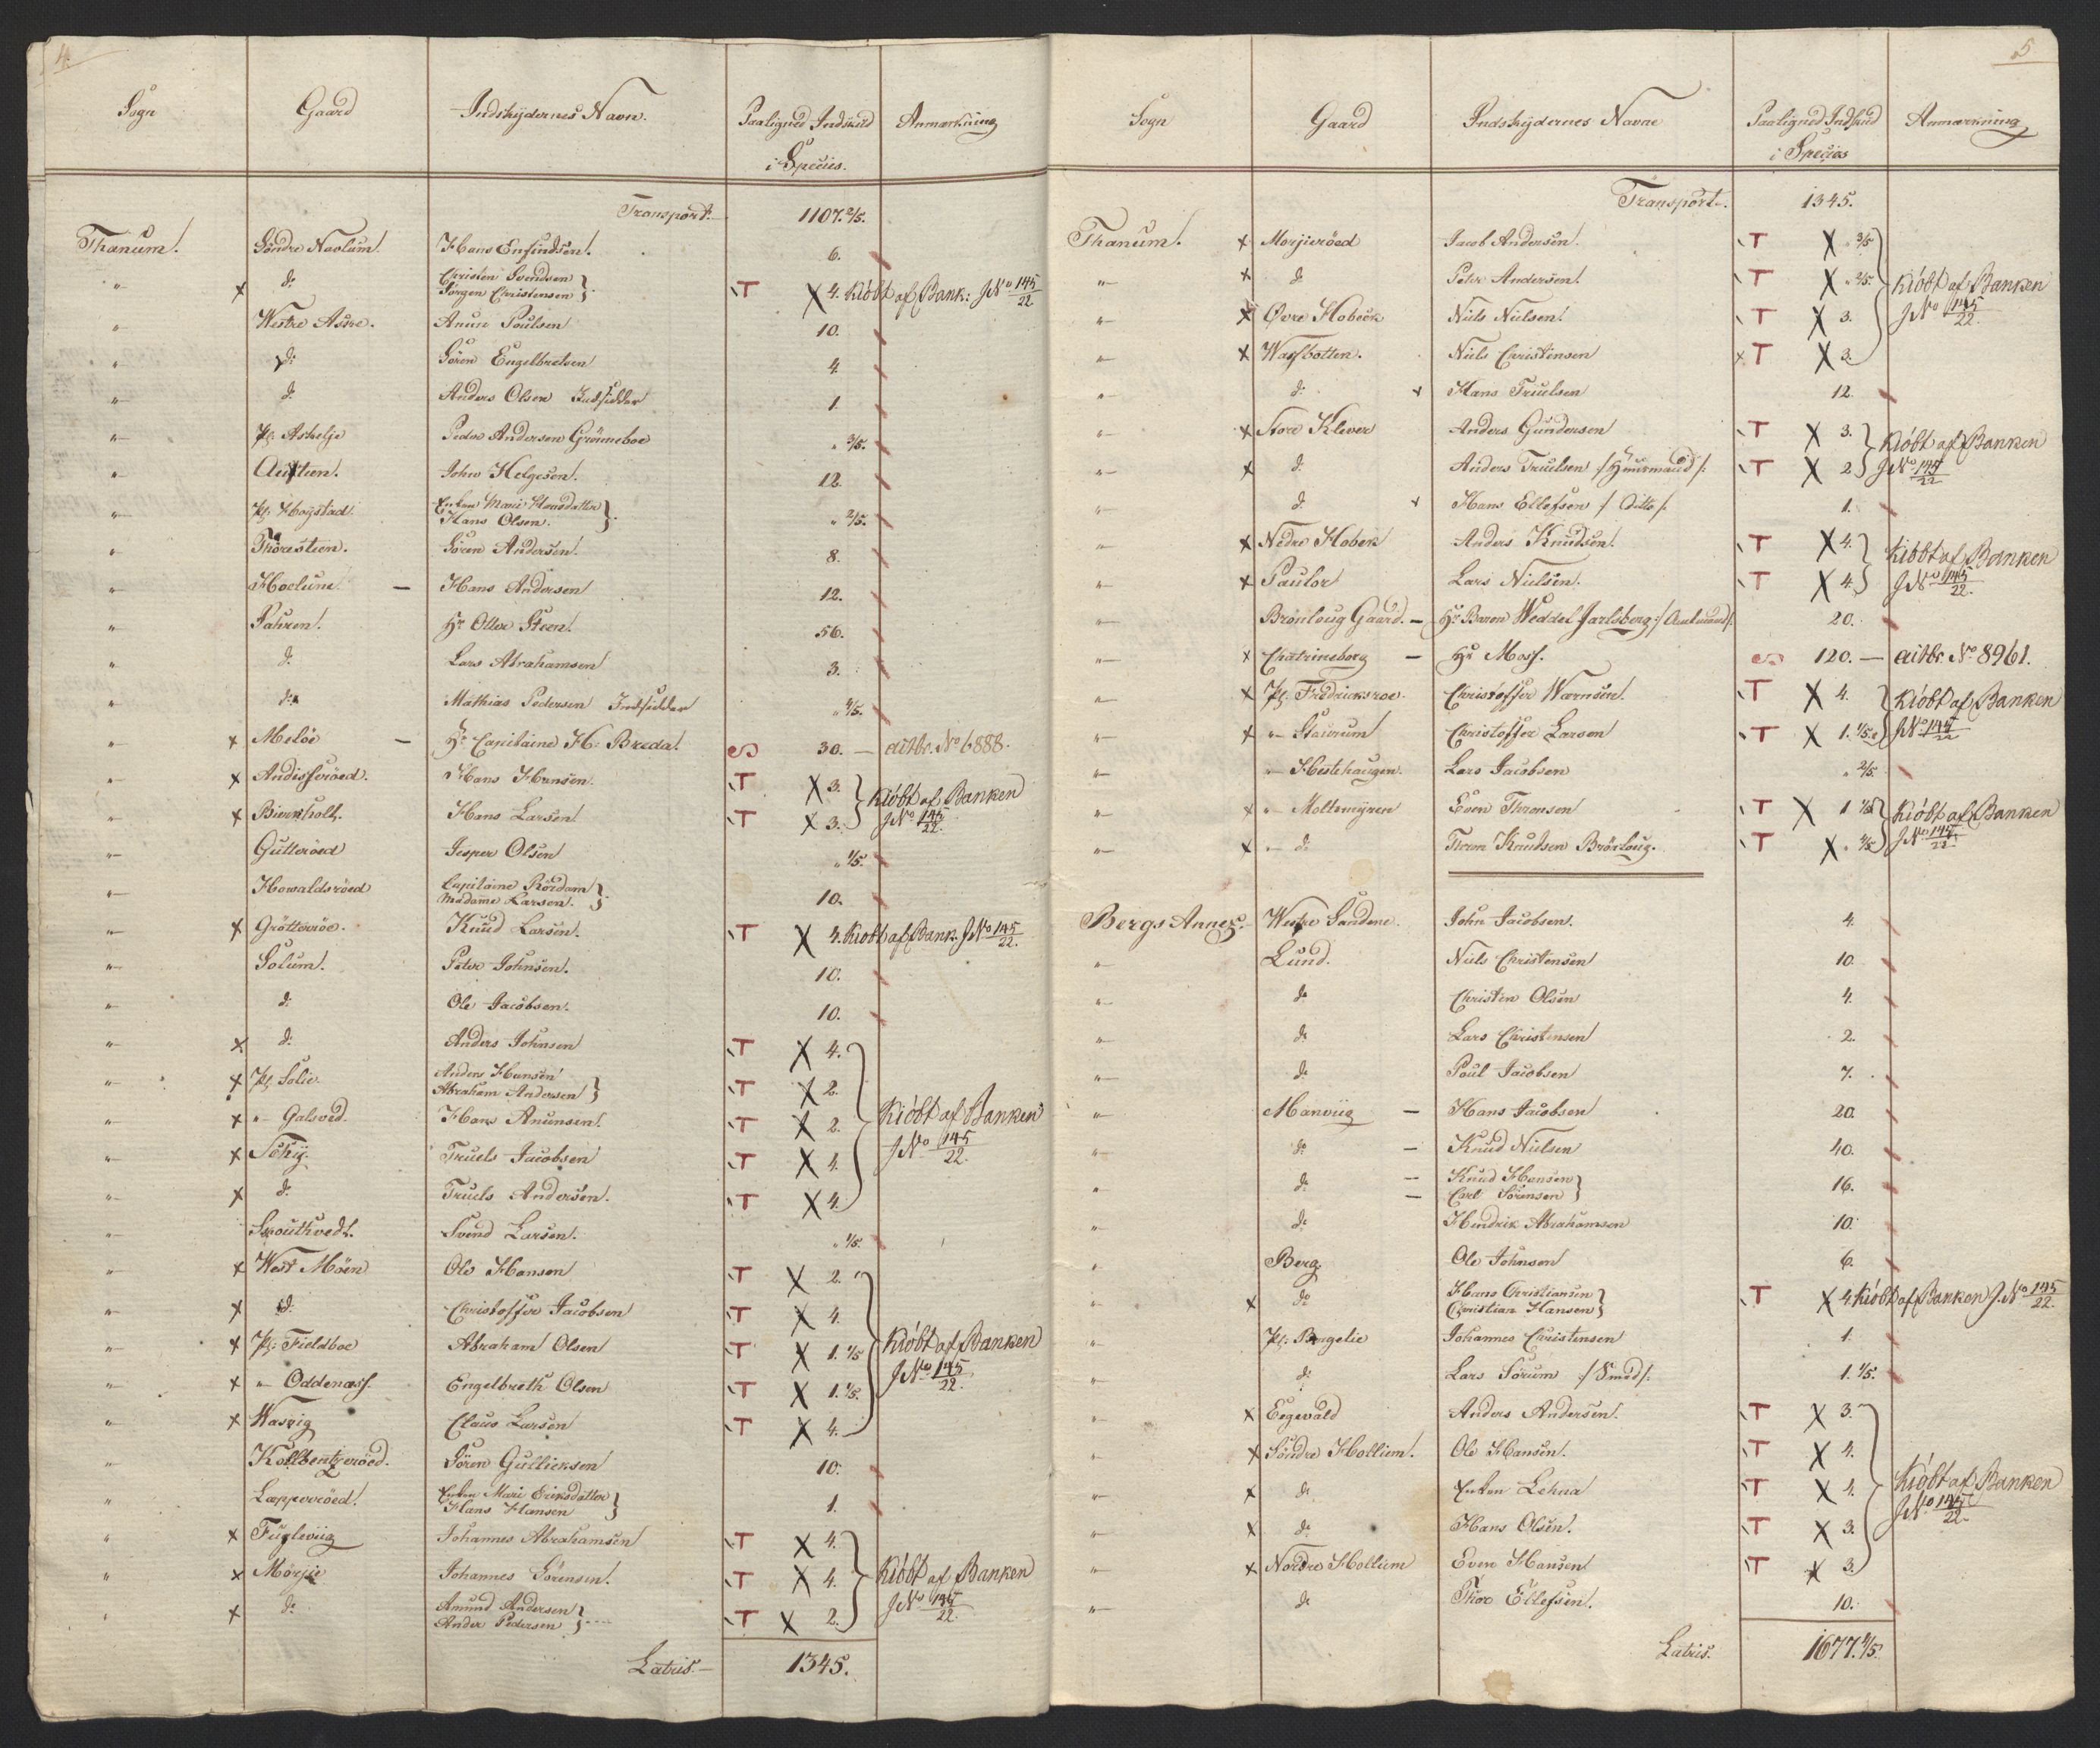 4.
Sogn Gaard Indskydernes Navn. Paaligned Indskud i Species. Anmærkning
Transport. 1107.2/5.
Thanum. Søndre Naolum. Hans Enfindsen. 6.
"- x d: Christen Svendsen } Jørgen Christensen } T X 4. Kiøbt af Bank: J No 145/22
" Westre Askre. Anun Poulsen 10.
" d: Søren Engelbretsen 4.
"- d: Anders Olsen Indsidder 1.
"- Pl: Askelje Peder Andersen Grønneboe " 3/5.
" Austeen. John Helgesen. 12.
"- Pl: Høystad Enken Marie Hansdatter } Hans Olsen. } " 2/5.
" Thoresteen. Søren Andersen. 8.
"- Hoelune. - Hans Andersen 12.
"- Fahren. Hr Otter Steen. 56.
" d: Lars Abrahamsen 3.
" d: Mathias Pedersen Indsidder " 4/5.
"- x Meløe - Hr Capitaine H: Breda. 30. - aitbr. No 6888.
"- x Andisserøed. Hans Hansen. T X 3. } Kiøbt af Banken
"- x Biernholt. Hans Larsen T X 3. } J No 145/22.
"- Gutterøed Jesper Olsen " 1/5.
"- Howaldsrøed Capitaine Rördam } Madame Larsen. } 10.
"- x Grøtterøe. Knud Larsen. T X 4. Kiobt af Bank. J No 145/22.
"- Solum. Peter Johnsen. 10.
"- d: Ole Jacobsen. 10.
"- x d: Anders Johnsen T X 4.
"- x Pl: Solie. Anders Hansen Abraham Andersen } T X 2.
"- x "- Galsved. Hans Anunsen. T X 2. Kiøbt af Banken
"- x Toky. Truels Jacobsen T X 4. J No 145/22.
"- x d: Truels Andersen. T X 4.
"- Skouthvedt. Svend Larsen. " 1/5.
"- x West Møen Ole Hansen T X 2.
"- x d: Christoffer Jacobsen T X 4.
"- x Pl: Fieldboe Abraham Olsen T X 1. 1/5 Kiøbt af Banken
"- x "- Oddenæss. Engelbreth Olsen T X 1. 1/5. J No 145/22.
" x Wasvig Claus Larsen T X 4.
" Kolbentzerøed. Søren Gullicksen 10.
" Lapperøed. Enken Mari Eriksdatter Hans Hansen } 1.
" x Fugleviig Johannes Abrahamsen T X 4.
" x Mørjie Johannes Sørensen. T X 4. Kiøbt af Banken
x d: Amund Andersen } Ander Pedersen } T X 2. J No 145/22.
Latris.- 1345.
5
Sogn Gaard Indskydernes Navne Paaligned Indskud i Species Anmærkning
Transport. 1345.
Thanum. x Morjierøed Jacob Andersen. T X " 3/5
"- x d: Peter Andersen. T X " 2/5. Kiøbt af Banken
"- x Øvre Hobeck Niels Nielsen. T X 3. J No 145/22.
"- x Wassbotten. Niels Christensen x T X 3.
"- d: x Hans Truelsen 12.
"- x Store Klever Anders Gundersen T X 3. } Kiøbt af Banken
"- x d: Anders Truelsen /: Huusmand /: T X 2. J No 145/22
"- d: x Hans Ellefsen / Ditto /: 1.
"- x Nedre Hobek Anders Knudsen. T X 4. } Kiøbt af Banken
"- x Paulor Lars Nielsen. T X 4. J No 145/22.
"- Brønloug Gaard. - Hr Baron Weddel Jarlsberg :/ Amtmand /. 20.
"- x Chatrineborg - Hr Moss. 120. - aitbr. No 8961.
"- x Pl: Fredricksroe. Christoffer Warnsen. T X 4. } Kiøbt af Banken
"- x "- Staurum Christoffer Larsen T X 1. 1/5. J No 145/22
"- "- Hestehaugen. Lars Jacobsen " 2/5.
"- x "- Moltemyren Even Thronsen T X 1 1/5 Kiøbt af Banken
"- x "- d: Thron Knudsen Brørloug. T X " 4/5 J No 145/22.
Bergs Annex. Westre Sandene. John Jacobsen. 4.
"- Lund. Niels Christensen 10.
"- de Christen Olsen 4.
"- de Lars Christensen 2.
"- de Poul Jacobsen 7.
"- Manviig - Hans Jacobsen 20.
"- de - Knud Nielsen 40.
"- de - Knud Hansen - Carl Sørensen } 16.
"- de Hendrik Abrahamsen 10.
" Berg. Ole Johnsen 6.
"- x de Hans Christiansen Christian Hansen } T X 4. Kiøbt af Banken J. No 145/22.
"- Pl: Bergelie Johannes Christensen 1.
"- d: Lars Sørum :/ Smed /: 1. 1/5.
"- x Eegevald Anders Andersen. T X 3.
"- x Søndre Hollum. Ole Hansen. T X 4.
"- x de Enken Lehna T X 4. Kiøbt af Banken
"- x de Hans Olsen. T X 3. J No 145/22.
"- x Nordre Hollum Even Hansen T X 3.
"- de Thor Ellefsen. 10.
Latris. 1677.4/5.